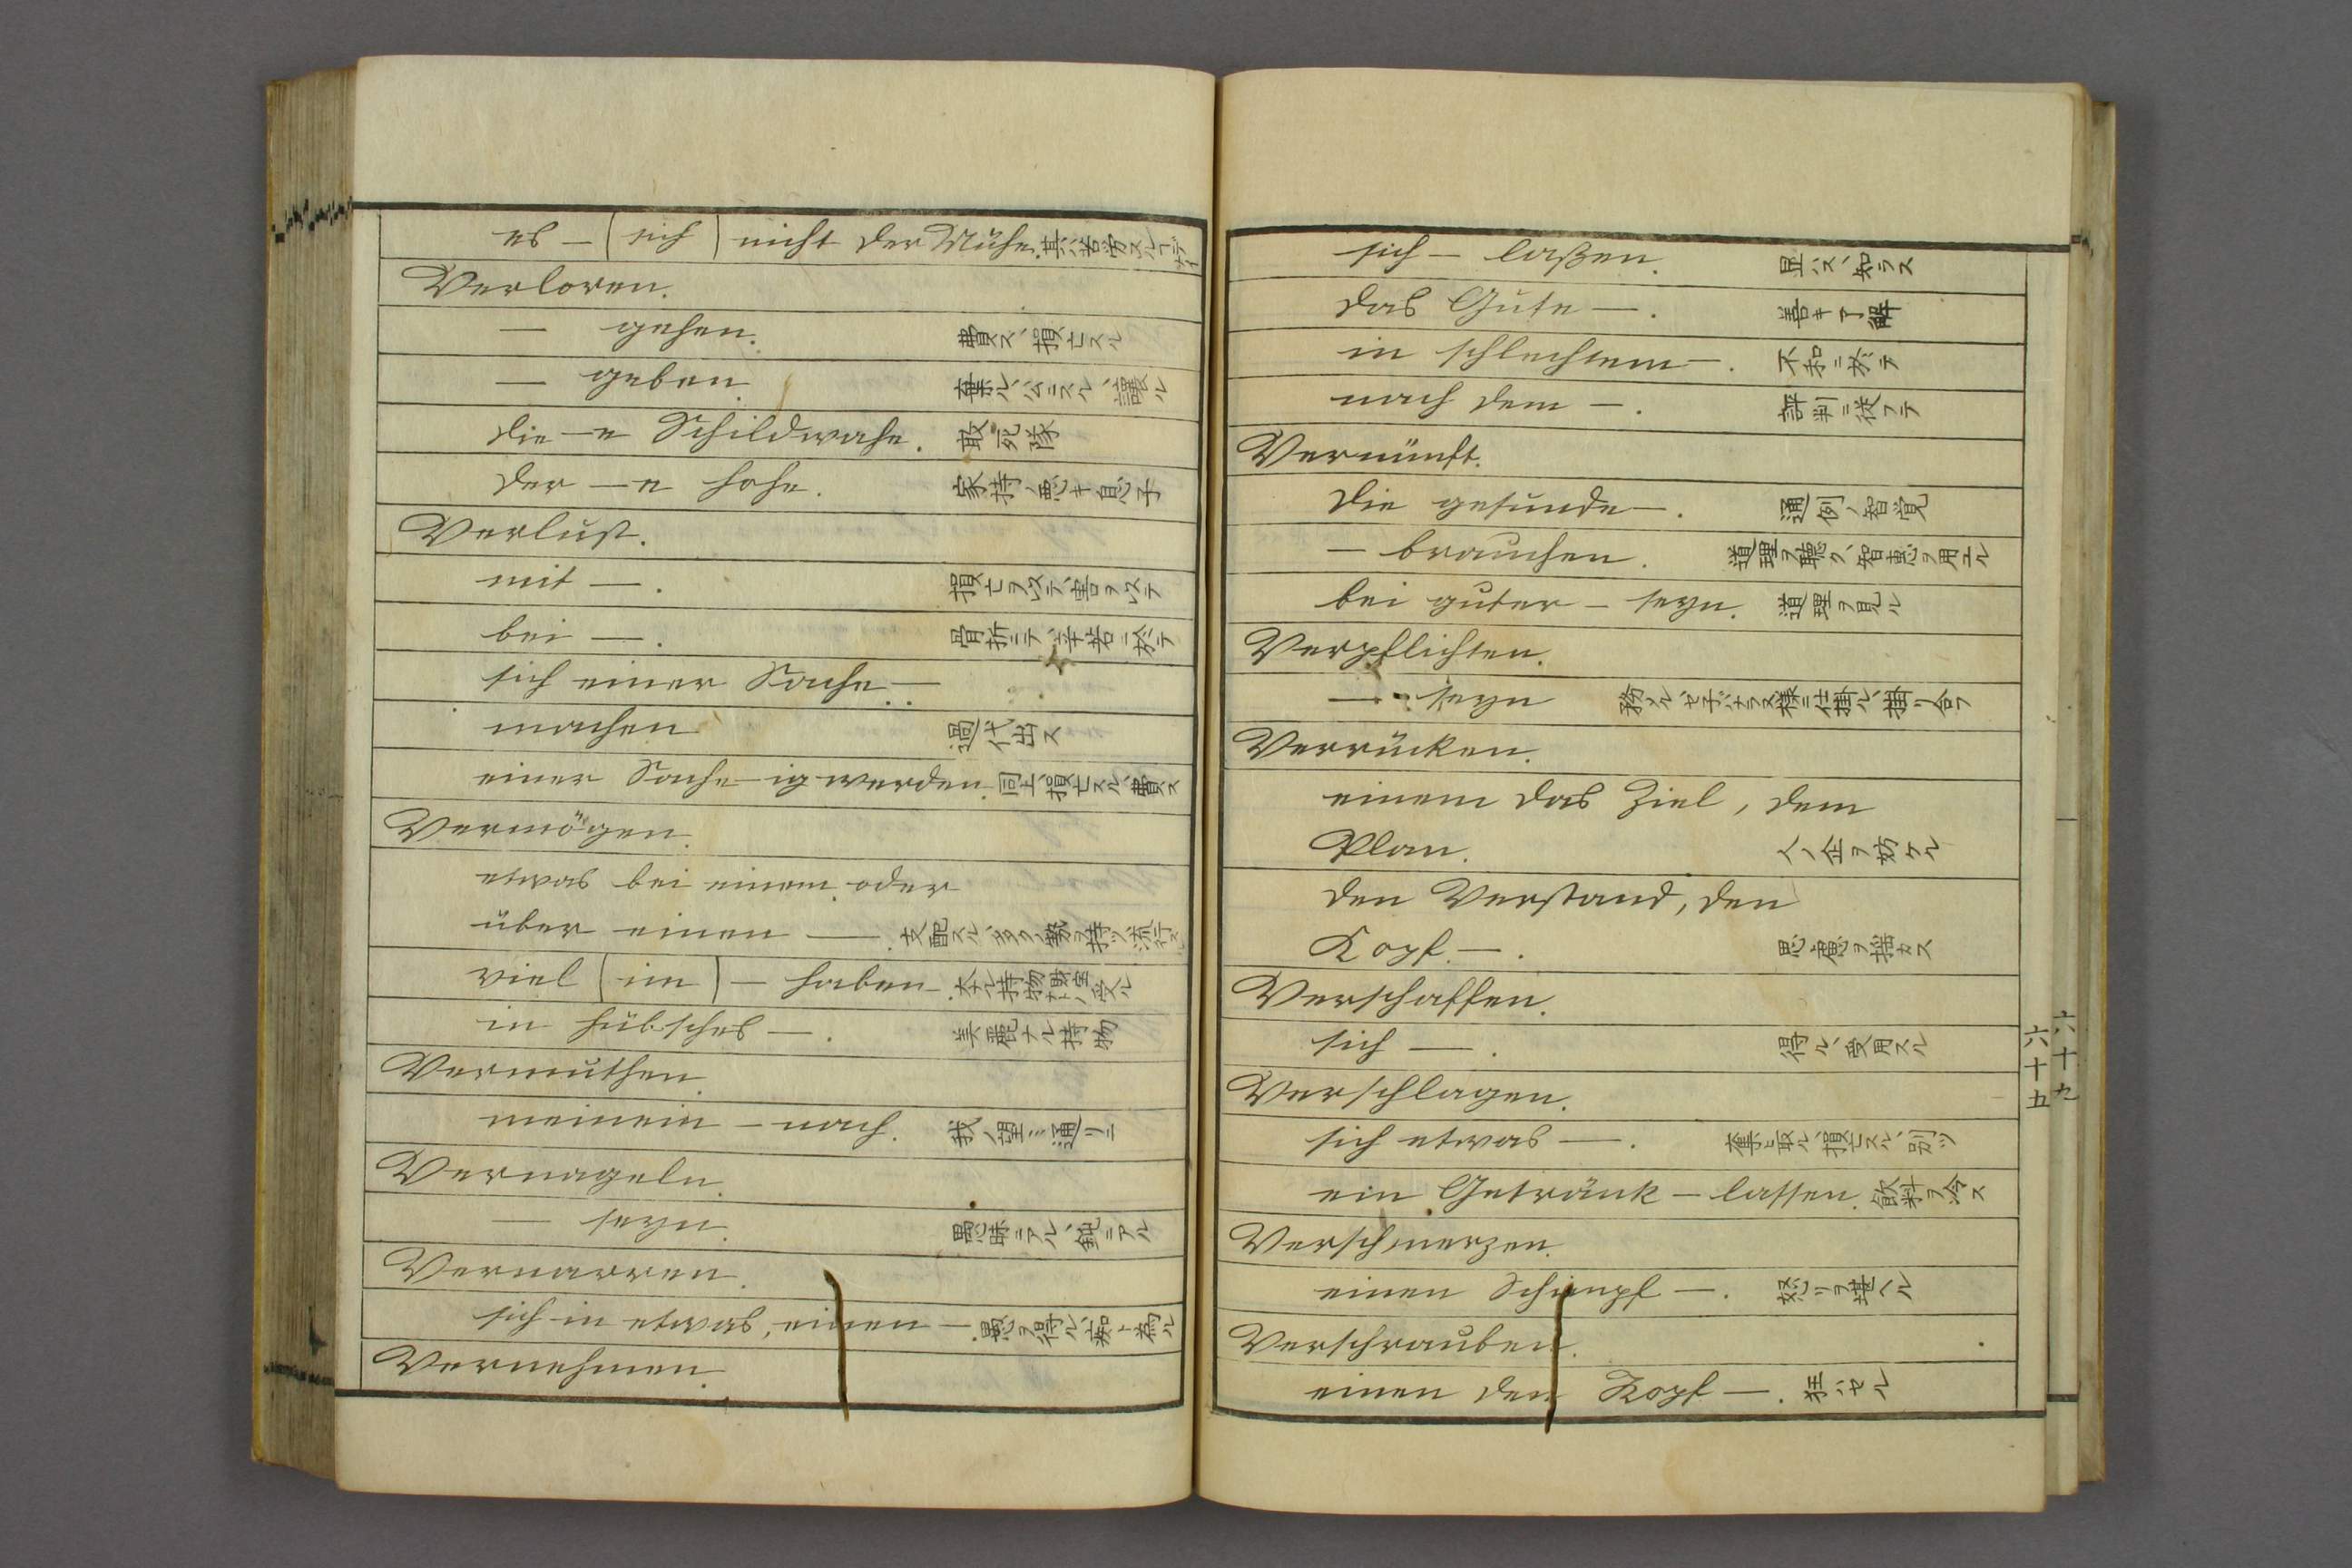 es — (sich) nicht der Mühe.
Verloren.
— gehen. 費ス、損亡スル
— geben. 棄ル、
die —e Schildwache. 敢死隊
der —e Sohn. 家持ノ悪キ息子
Verlust.
mit —. 損亡ヲ以テ、害ヲ以テ
bei —. 骨折ニテ、辛苦ニ於テ
sich einer Sache —
machen 過代出ス
einer Sache —ig werden. 同上、損亡スル、費ス
Vermögen.
etwas bei einem oder
über einen —. 支配スル、多クノ勢ヲ持ツ、流行ス
viel (im) — haben.
in hübsches —. 美麗ナル持物
Vermuthen.
meinem — nach. 我ノ望ミ通リニ
Vernageln.
— seyn. 愚昧ニアル、鈍ニアル
Vernarren.
sich in etwas, einen —. 愚ヲ得ル、痴ト為ル
Vernehmen.
sich — laßen. 知ラス
das Gute —. 善キ了解
in schlechtem —. 不和ニ於テ
nach dem —. 評判ニ従フテ
Vernünft.
die gesunde —. 通例ノ智覚
— brauchen. 道理ヲ聴ク、智恵ヲ用エル
bei guter — seyn. 道理ヲ見ル
Verpflichten.
— seyn
Verrücken.
einem das Ziel, dem
Plan. 人ノ企ヲ妨クル
den Verstand, den
Kopf —. 思慮ヲ揺カス
Verschaffen.
sich —. 得ル、受用スル
Verschlagen.
sich etwas —. 奪ヒ取ル、損亡スル、別ツ
ein Getränk — lassen. 飲料ヲ冷ス
Verschmerzen.
einen Schimpf —. 怒リヲ堪ヘル
Verschrauben.
einen den Kopf —. 狂ハセル
六十五
六十九